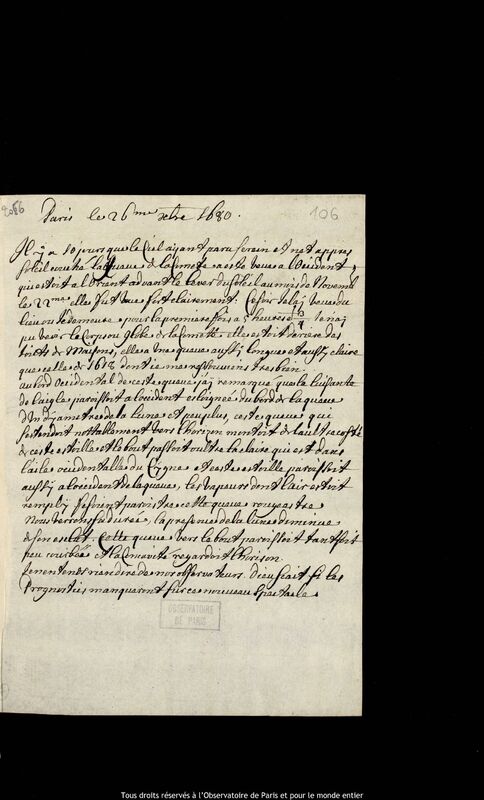 2086
106
Paris le 26me xbre 1680.
Il y a 10 jours que le Ciel ayant paru serein et net appres
soleil couché la queue de la Comete a esté veue a l'occident,
qui estoit a l'orient advant le lever du soleil au mois de Novemb
les 22me elle fut veue fort clairement. Ce soir la je veue du
lieu ou je demeure, pour la premiere fois a 5 heures je n'ay
peu voir le Corps ou Globe de la Comette elle estoit derriere des
toicts de Maisons, elle a une queue aussy longue et aussy claire
que celle de 1618 dont je me ressouviens tres bien.
au bord occidental de cette queue j'ay remarqué que la luisante
de l'aigle paroissoit a l'occident esloignée du bord de la queue
d'un dyametre de la Lune et peu plus, cette queue qui
s'estendoit notablement vers l'horizon montoit de l'autre costé
de ceste estoille et le bout passoit oultre la claire qui est dans
l'aisle occidentalle du Cygne et ceste estoille paroissoit
aussy a l'occident de la queue, les vapeurs dont l'air estoit
remply fesoient paroistre cette queue rougeastre
Nous verrons sa durée, la presence de la lune diminue
de son esclat. Cette queue vers le bout paroissoit tant soit
peu courbée et la Concavité regardoit l'horison.
Je n'entends rien dire de nos observateurs. Dieu scait si les
Prognostics manqueront sur ce nouveau spectacle.
OBSERVATOIRE
DE PARIS
Tous droits réservés à l'Observatoire de Paris et pour le monde entier